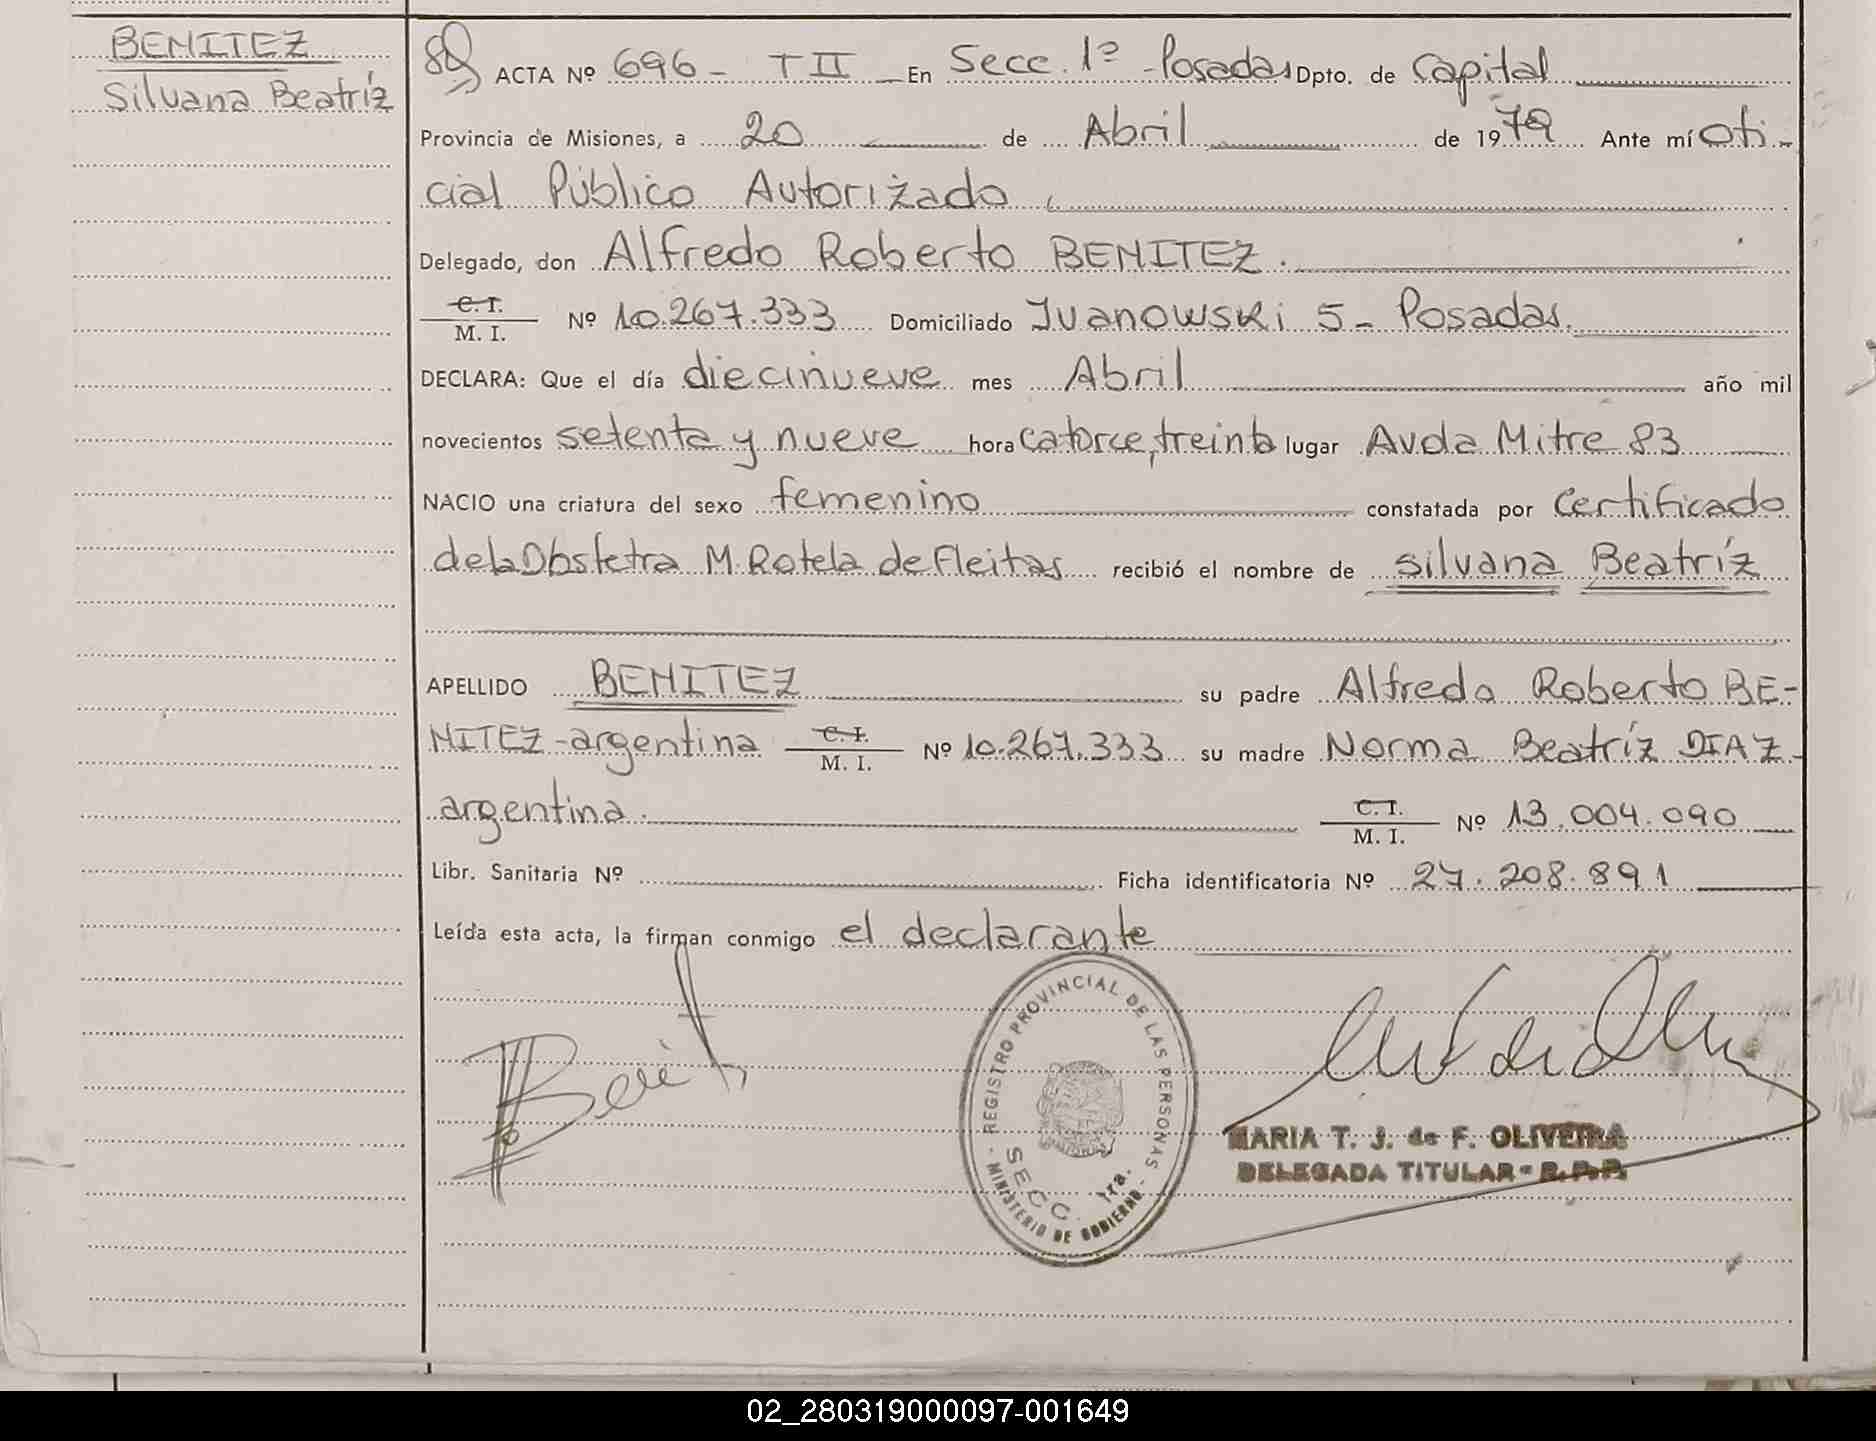 BENITEZ
Silvana Beatríz
89
ACTA Nº 696 - T II - En Secc. 1º - Posadas Dpto. de Capital
Provincia de Misiones, a 20 de Abril de 1979 Ante mí Ofi-
cial Público Autorizado,
Delegado, don Alfredo Roberto BENITEZ.
C. I.
M. I. Nº 10.267.333 Domiciliado Ivanowski 5 - Posadas.
DECLARA: Que el día diecinueve mes Abril año mil
novecientos setenta y nueve hora catorce, treinta lugar Avda Mitre 83
NACIO una criatura del sexo femenino constatada por Certificado
de la Obstetra M. Rotela de Fleitas recibió el nombre de Silvana Beatríz
APELLIDO BENITEZ su padre Alfredo Roberto BE-
NITEZ - argentina C. I. M. I. Nº 10.267.333 su madre Norma Beatríz DIAZ -
argentina. C. I. M. I. Nº 13.004.090
Libr. Sanitaria Nº Ficha identificatoria Nº 27.208.891
Leída esta acta, la firman conmigo el declarante
REGISTRO PROVINCIAL DE LAS PERSONAS
SECC. 1ra.
- MINISTERIO DE GOBIERNO -
MARIA T. J. de F. OLIVEIRA
DELEGADA TITULAR - R. P. P.
02_280319000097-001649